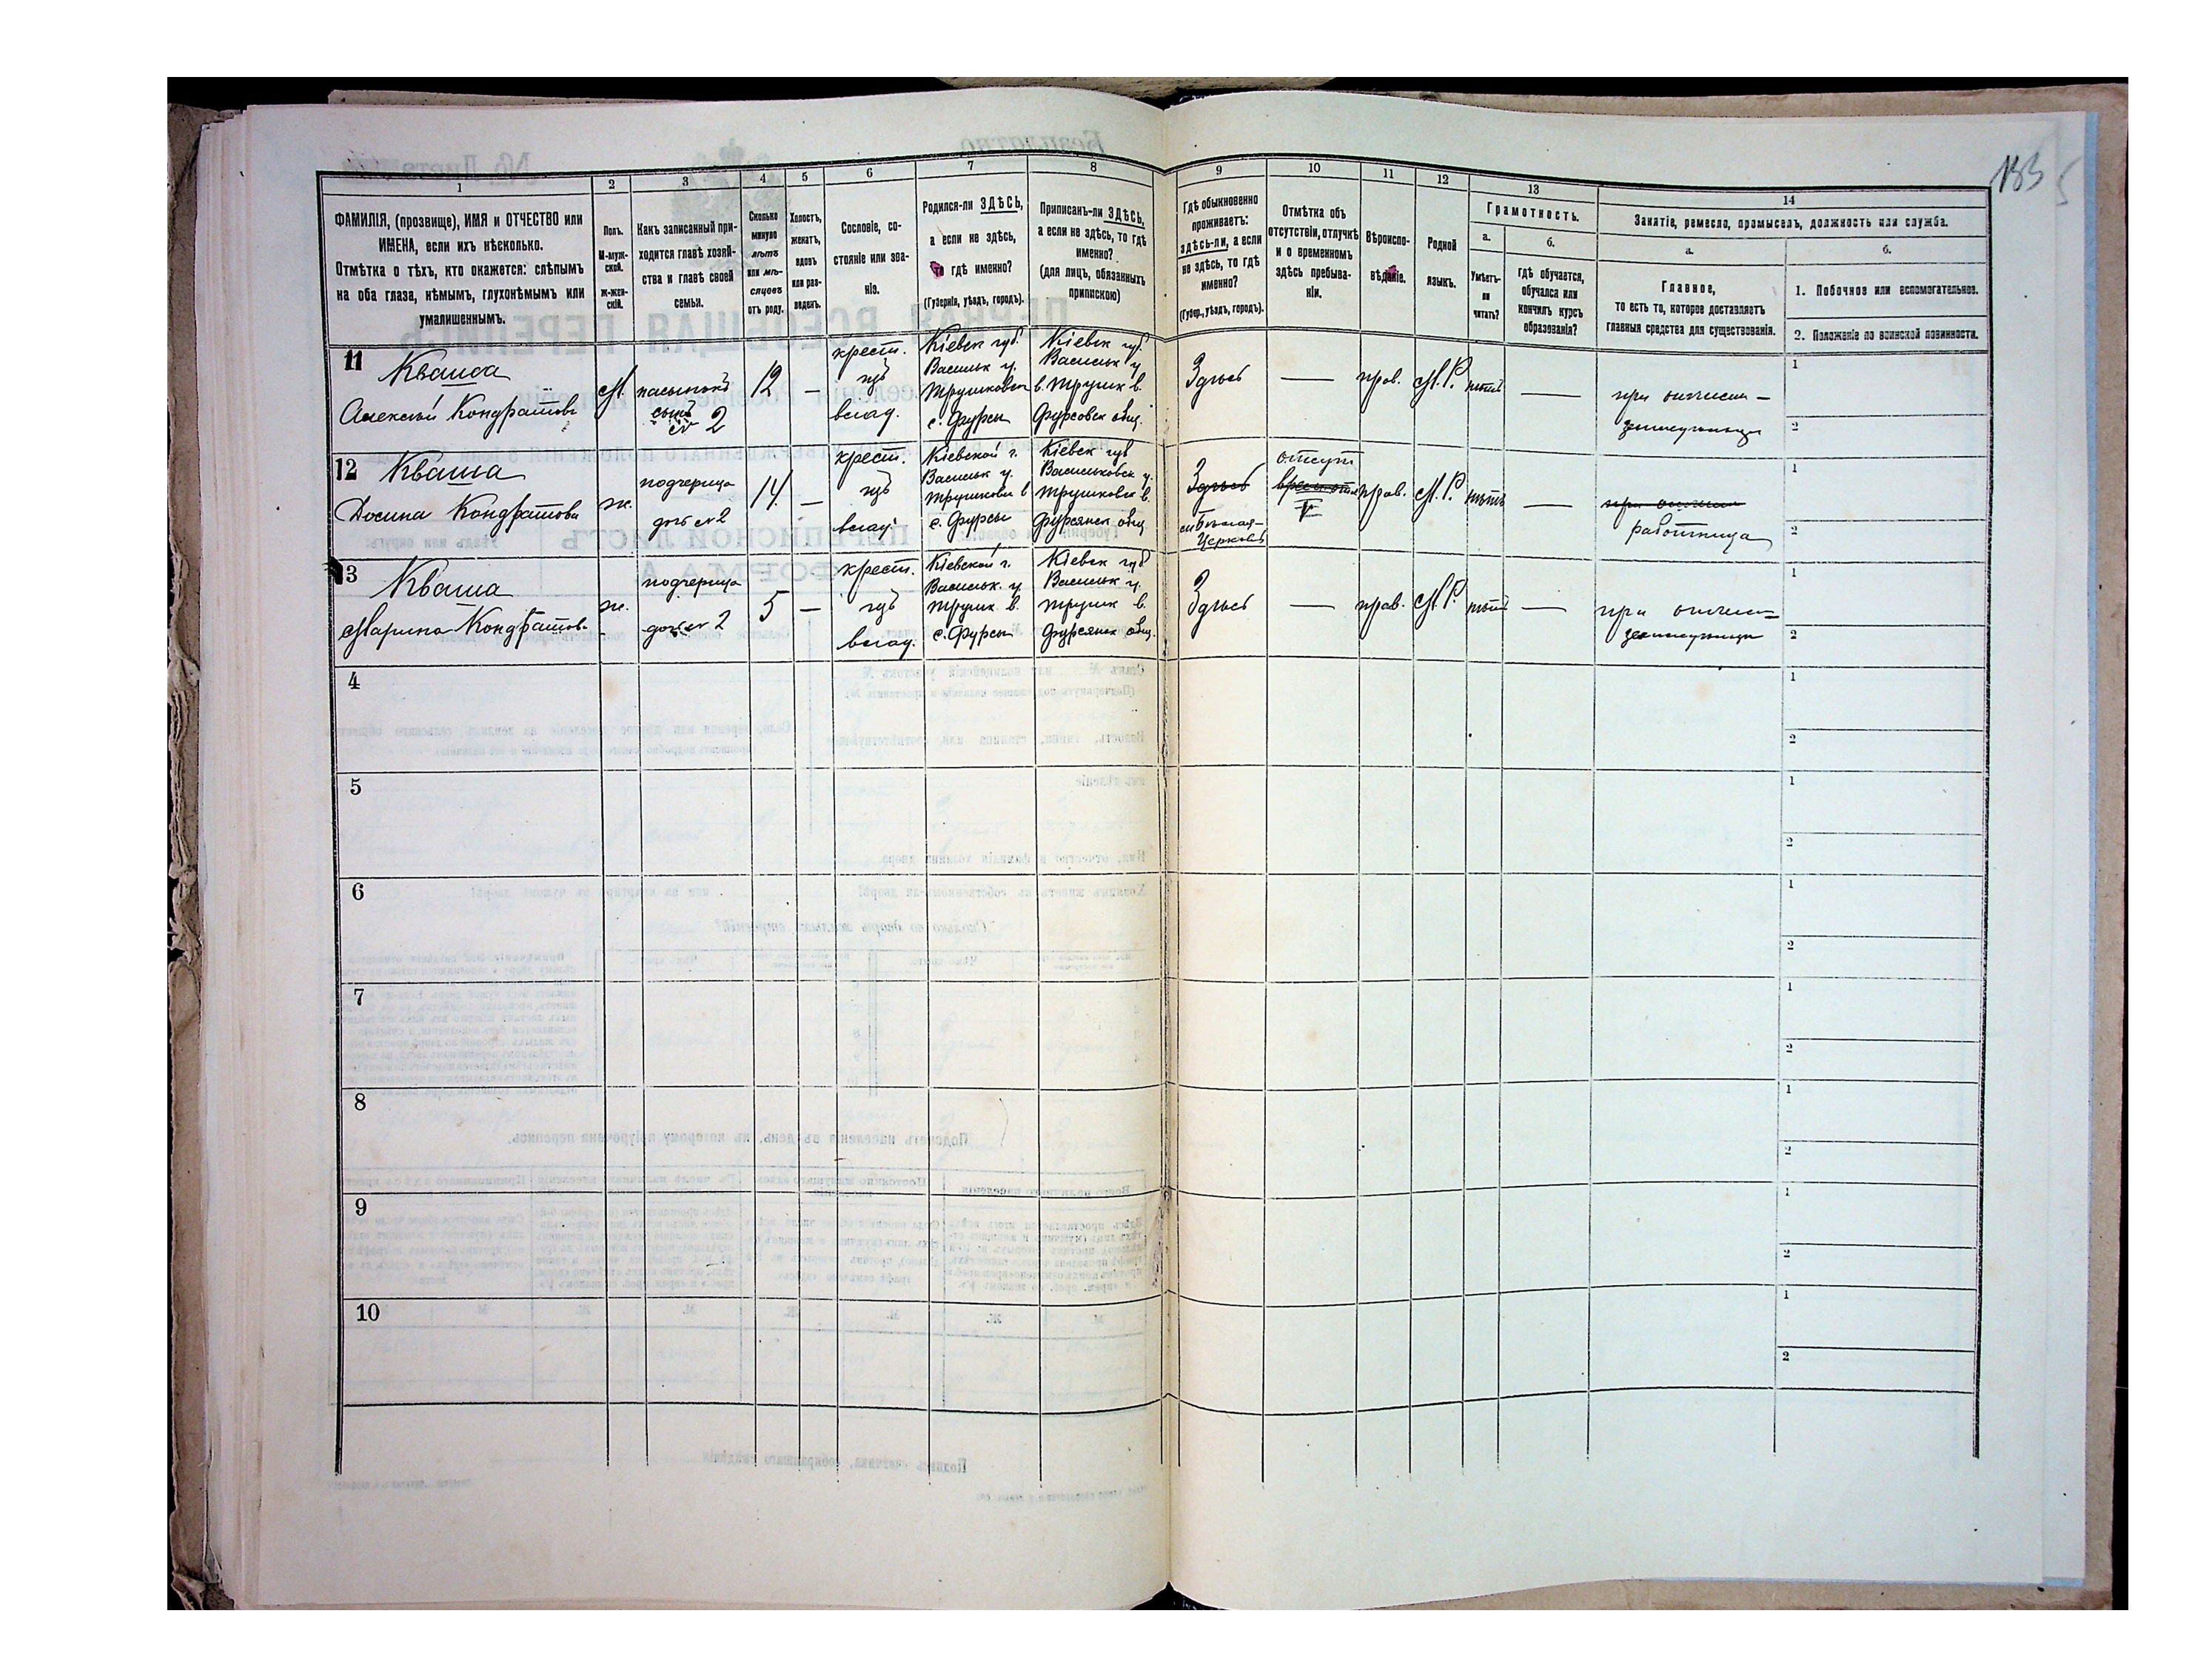 133
1
ФАМИЛІЯ, (прозвище), ИМЯ и ОТЧЕСТВО или
ИМЕНА, если ихъ нѣсколько.
Отмѣтка о тѣхъ, кто окажется: слѣпымъ
на оба глаза, нѣмымъ, глухонѣмымъ или
умалишеннымъ.
2
Полъ.
М-муж-
ской.
Ж-жен-
скій.
3
Какъ записанный при-
ходится главѣ хозяй-
ства и главѣ своей
семьи.
4
Сколько
минуло
лѣтъ
или мѣ-
сяцевъ
отъ роду.
5
Холостъ,
женатъ,
вдовъ
или раз-
веденъ.
6
Сословіе, со-
стояніе или зва-
ніе.
7
Родился-ли ЗДѢСЬ,
а если не здѣсь,
то гдѣ именно?
(Губернія, уѣздъ, городъ).
8
Приписанъ-ли ЗДѢСЬ,
а если не здѣсь, то гдѣ
именно?
(для лицъ, обязанныхъ
припискою)
9
Гдѣ обыкновенно
проживаетъ:
здѣсь-ли, а если
не здѣсь, то гдѣ
именно?
(Губер., уѣздъ, городъ).
10
Отмѣтка объ
отсутствіи, отлучкѣ
и о временномъ
здѣсь пребыва-
ніи.
11
Вѣроиспо-
вѣданіе.
12
Родной
языкъ.
13
Грамотность.
а.
Умѣетъ-
ли
читать?
б.
гдѣ обучается,
обучался или
кончилъ курсъ
образованія?
14
Занятіе, ремесло, промыселъ, должность или служба.
а.
Главное,
то есть то, которое доставляетъ
главныя средства для существованія.
б.
1. Побочное или вспомогательное.
2. Положеніе по воинской повинности.
11
Кваша
Алексѣй Кондратовъ
М.
пасынокъ
сынъ
№ 2
12
—
крест.
изъ
влад.
Кіевск губ.
Васильк у.
Трушковск в.
с. Фурсы
Кіевск губ.
Васильк у
Трушк в.
Фурсовск общ.
Здѣсь
—
прав.
М. Р.
нѣтъ
—
при
1
2
12
Кваша
Кондратова
ж.
подчерица
дочь № 2
14
—
крест.
изъ
влад.
Кіевской г.
Васильк у.
Трушковск в
с. Фурсы
Кіевск губ
Васильковск у.
Трушковск в.
Фурсянск общ
Здѣсь
Бѣлая-
Церковь
отсут
V
прав.
М. Р.
нѣтъ
—
работница
1
2
13
Кваша
Марина Кондратова
ж.
подчерица
дочь № 2
5
—
крест.
изъ
влад.
Кіевской г.
Васильк. у
Трушк. в.
с. Фурсы
Кіевск губ
Васильк у.
Трушк в.
Фурсянск общ.
Здѣсь
—
прав.
М. Р.
нѣтъ
—
при
1
2
4
1
2
5
1
2
6
1
2
7
1
2
8
1
2
9
1
2
10
1
2